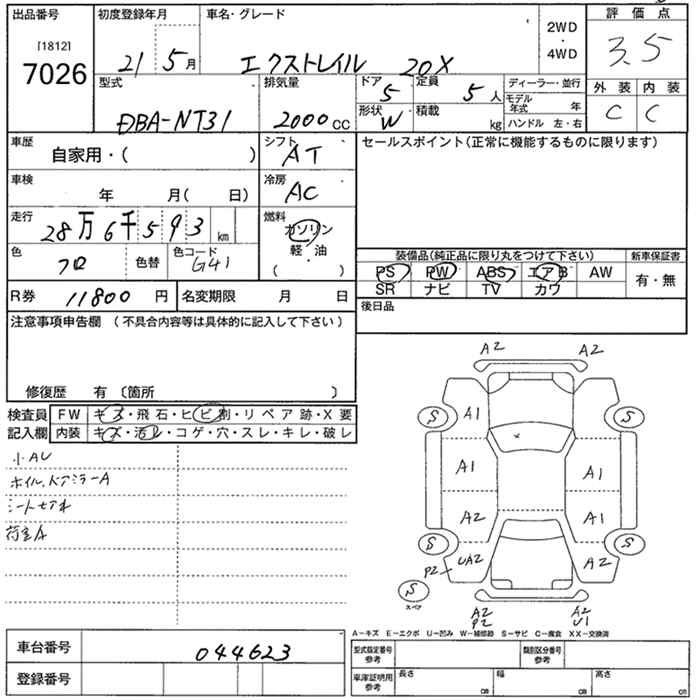 出品番号 初度登録年月 車名・グレード 2WD・4WD 評価点
[1812]
7026
21 5月 エクストレイル 20X 3.5
型式 排気量 ドア 定員 ディーラー・並行 外装 内装
DBA-NT31 2000CC 5 5人 モデル年式 年 C C
形状 積載 ハンドル 左・右
W kg
車歴 自家用・( ) シフト セールスポイント(正常に機能するものに限ります)
AT
車検 年 月( 日) 冷房
AC
走行 28万6千593km 燃料
ガソリン
軽・油
( )
色 色替 色コード 装備品(純正品に限り丸をつけて下さい) 新車保証書
クロ G41 PS PW ABS エアB AW 有・無
SR ナビ TV カワ
R券 11800円 名変期限 月 日 後日品
注意事項申告欄 (不具合内容等は具体的に記入して下さい)
修復歴 有 〔箇所 〕
検査員 FW キズ・飛石・ヒビ割・リペア跡・X要
記入欄 内装 キズ・汚レ・コゲ・穴・スレ・キレ・破レ
小AU
ホイル、ドアミラーA
荷室A
A2 A2
S A1 S
A1 A1
A2 A1
S P2 UA2 A2 S
S
スペア
A2 A2
P2 U1
A−キズ E−エクボ U−凹み W−補修跡 S−サビ C−腐食 XX−交換済
車台番号 044623 型式指定番号 参考 類別区分番号 参考
登録番号 車庫証明用 参考 長さ cm 幅 cm 高さ cm